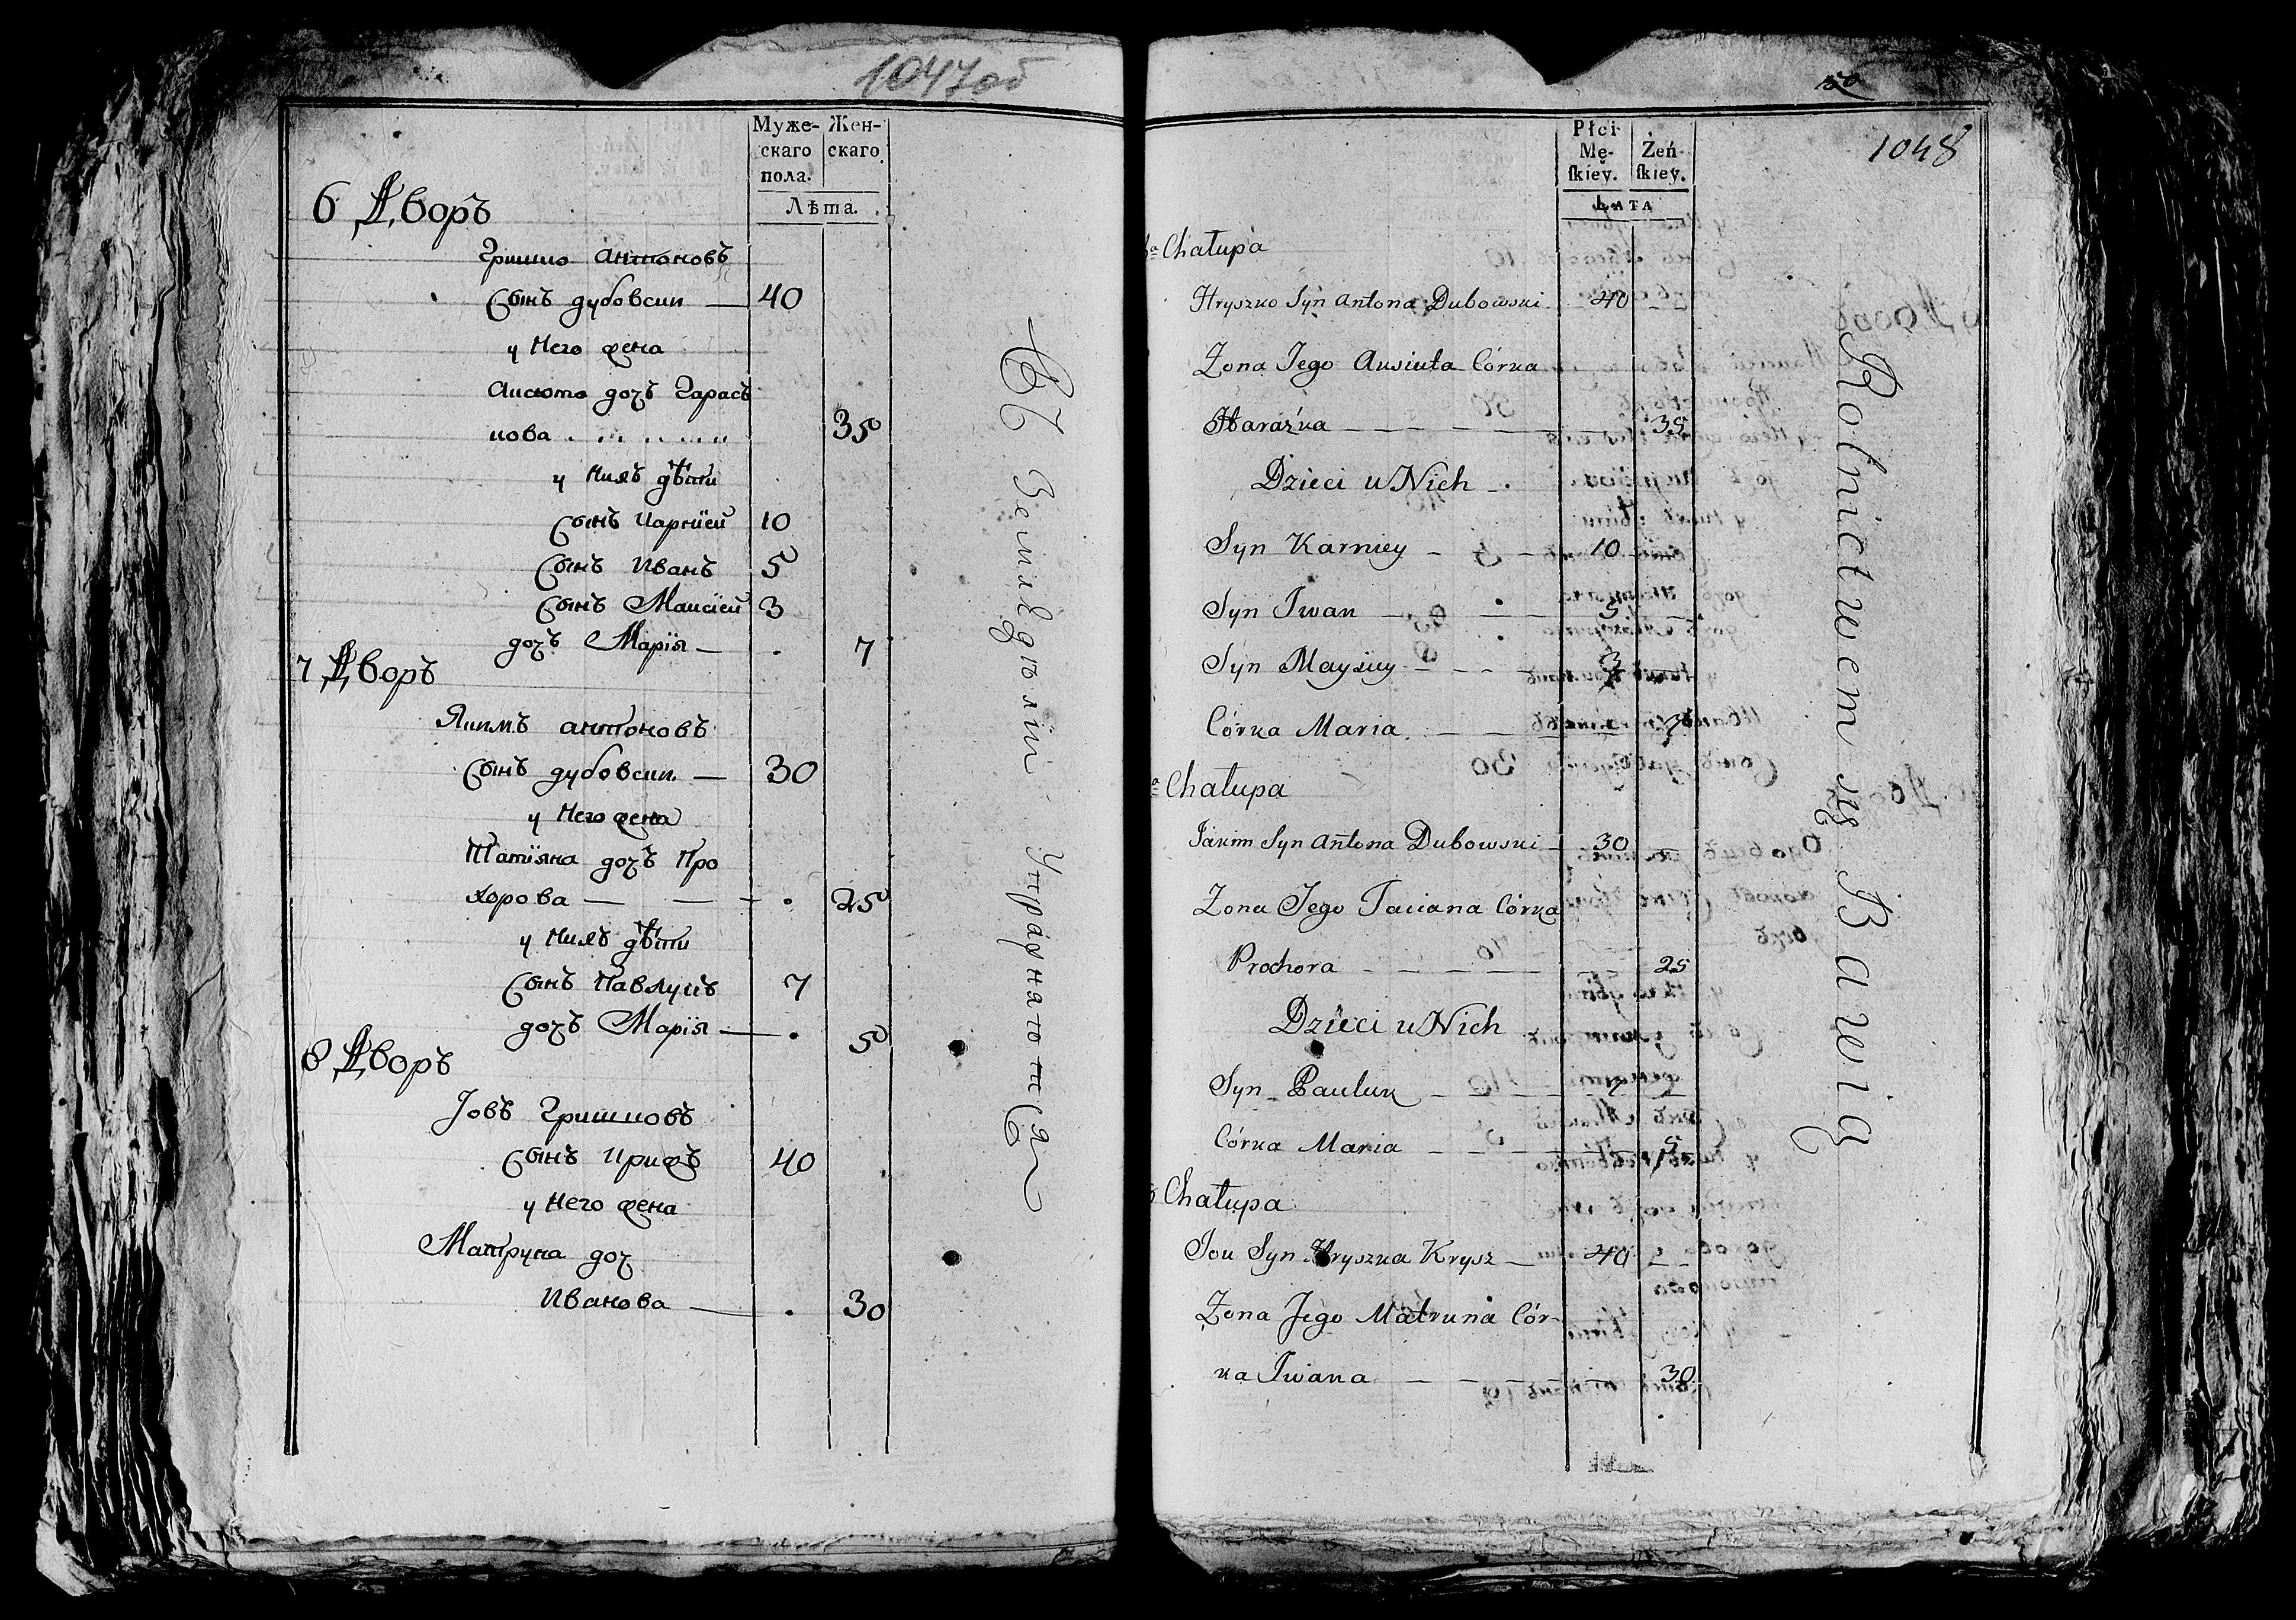 1047об
Муже- Жен-
скаго скаго
пола.
Лѣта.
6 Дворъ
Гришко антоновъ
Сынъ дубовски — 40
у Него жена
Аксюта дочь Гарась
кова 35
у Нихъ дѣти
Сынъ Карнiей 10
Сынъ Иванъ 5
Сынъ Маисiей 3
дочь Марiя — . 7
7 Дворъ
Якимъ антоновъ
Сынъ дубовски — 30
у Него жена
Татiяна дочь Про
хорова — — — . 25
у Нихъ дѣти
Сынъ Павлукъ 7
дочь Марiя — . 5
8 Дворъ
Iовъ Гришковъ
Сынъ Крижъ 40
у Него жена
Матруна доч
Иванова — . 30
Въ Земледѣлiи Упражняются
50
1048
Płci
Mę- Żeń-
skiey. skiey.
Lata
Chałupa
Hryszko Syn Antona Dubowski 40
Zona Jego Ausiuta Córka
Haraźka — 35
Dzieci u Nich
Syn Karniey — 10
Syn Iwan — 5
Syn Maysiuy — 3
Córka Maria — 7
Chałupa
Jakim Syn Antona Dubowski — 30
Zona Jego Taciana Córka
Prochora — 25
Dzieci u Nich
Syn Pauluk — 7
Córka Maria — 5
Chałupa
Jou Syn Hryszka Krysz — 40
Zona Jego Matruna Cór-
ka Iwana — 30
Rolnictwem się Bawią